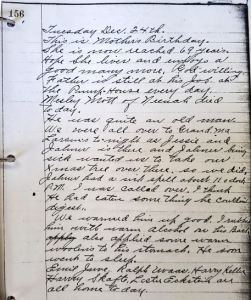 156
Tuesday Dec. 24th.
This is Mother's Birthday.
She is now reached 69 years.
Hope she lives and enjoys a
good many more, God willing.
Father is still at his job at
The Pump House every day.
Wesley Mott of Neenah died
to day.
He was quite an old man.
We were all over to Grandma
to night as Jessie and
is there and being
sick wanted us to take our
Xmas tree over there, so we did.
had a sick spell about 11 oclock
P.M. I was called over. I think
He had eaten some thing he couldn't
digest.
We warmed him up good. I rubbed
him with warm alcohol on the Back
also applied some warm
woolens to his stomach. He soon
went to sleep.
Ralph Harry Keller
Harry Lester are
all home to day.